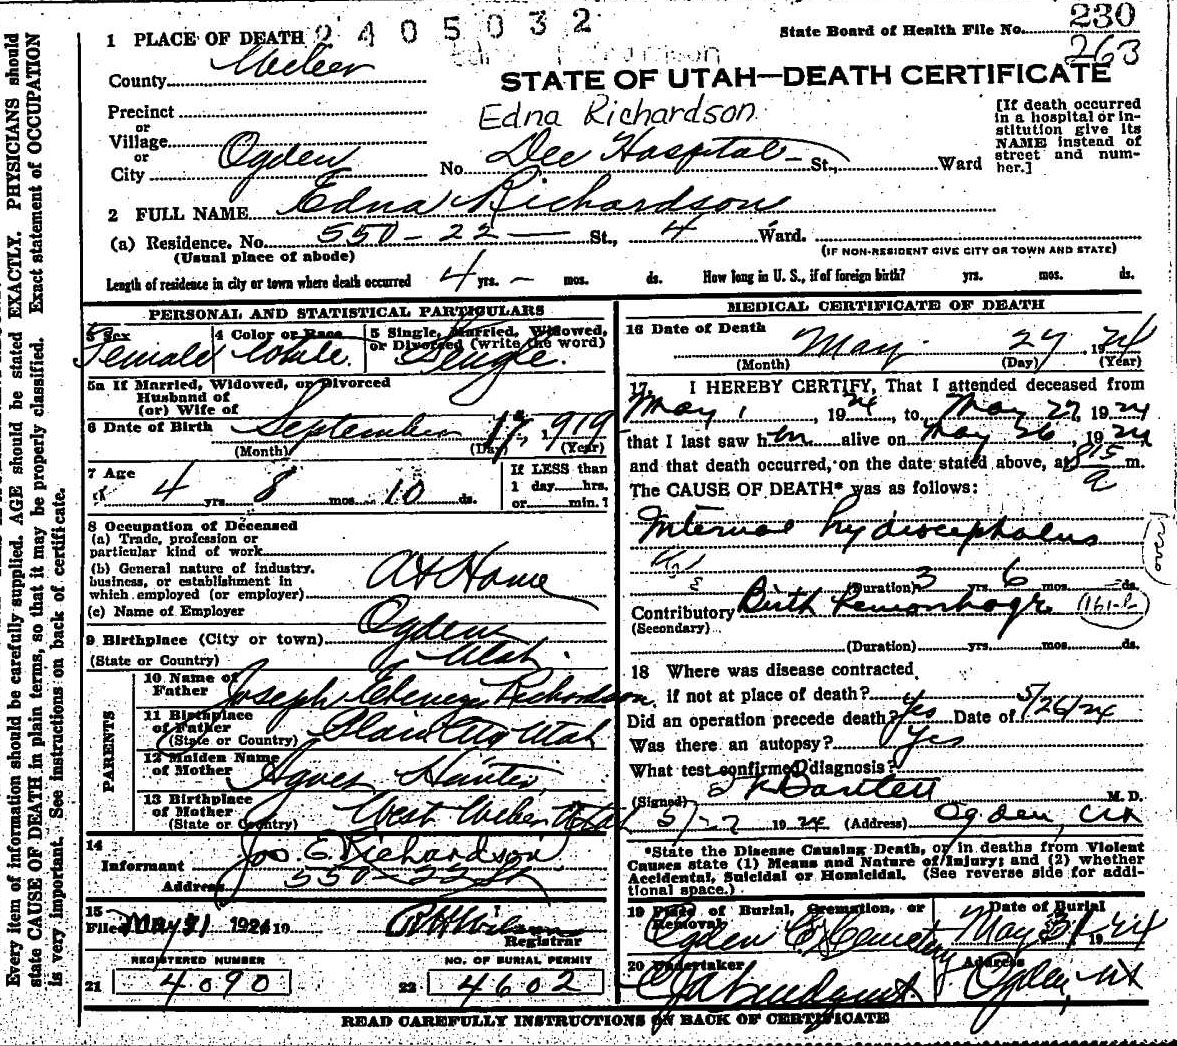 2405032
State Board of Health File No. 230
263
1 PLACE OF DEATH
County Weber
STATE OF UTAH—DEATH CERTIFICATE
Precinct
or
Village
or
City Ogden
Edna Richardson
No. Dee Hospital St., Ward
[If death occurred
in a hospital or in-
stitution give its
NAME instead of
street and num-
ber.]
2 FULL NAME Edna Richardson
(a) Residence. No. 550-22 — St., 4 Ward.
(Usual place of abode)
(IF NON-RESIDENT GIVE CITY OR TOWN AND STATE)
Length of residence in city or town where death occurred 4 yrs. - mos. ds. How long in U. S., if of foreign birth? yrs. mos. ds.
PERSONAL AND STATISTICAL PARTICULARS
3 Sex Female
4 Color or Race White.
5 Single, Married, Widowed,
or Divorced (write the word)
Single.
5a If Married, Widowed, or Divorced
Husband of
(or) Wife of
6 Date of Birth September 17, 1919
(Month) (Day) (Year)
7 Age
4 yrs. 8 mos. 10 ds.
If LESS than
1 day hrs.
or min. ?
8 Occupation of Deceased
(a) Trade, profession or
particular kind of work
(b) General nature of industry,
business, or establishment in
which employed (or employer)
At Home
(c) Name of Employer
9 Birthplace (City or town) Ogden
(State or Country) Utah.
PARENTS
10 Name of
Father Joseph Ebenezer Richardson
11 Birthplace
of Father
(State or Country) Plain City Utah
12 Maiden Name
of Mother Agnes Hunter
13 Birthplace
of Mother
(State or Country) West Weber Utah
14
Informant Jos. E. Richardson
Address 550-22 St
15
Filed May 31 1924 19
Registrar
REGISTERED NUMBER
21 4090
NO. OF BURIAL PERMIT
22 4602
MEDICAL CERTIFICATE OF DEATH
16 Date of Death
May 27, 1924
(Month) (Day) (Year)
17 I HEREBY CERTIFY, That I attended deceased from
May 1, 1924, to May 27, 1924
that I last saw her alive on May 26, 1924
and that death occurred, on the date stated above, at 815 a m.
The CAUSE OF DEATH* was as follows:
Internal hydrocephalus
(Duration) 3 yrs. 6 mos. — ds.
Contributory Birth hemorrhage. 161-b
(Secondary)
(Duration) yrs. mos. ds.
18 Where was disease contracted
if not at place of death?
Did an operation precede death? Yes Date of 5/26/24
Was there an autopsy? Yes
What test confirmed diagnosis?
(Signed) Bartlett M. D.
5/27 1924 (Address) Ogden, Ut
*State the Disease Causing Death, or in deaths from Violent
Causes state (1) Means and Nature of Injury; and (2) whether
Accidental, Suicidal or Homicidal. (See reverse side for addi-
tional space.)
19 Place of Burial, Cremation, or
Removal
Ogden City Cemetery
Date of Burial
May 31 1924
20 Undertaker
Lindquist.
Address
Ogden, Ut
READ CAREFULLY INSTRUCTIONS ON BACK OF CERTIFICATE
Every item of information should be carefully supplied. AGE should be stated EXACTLY. PHYSICIANS should
state CAUSE OF DEATH in plain terms, so that it may be properly classified. Exact statement of OCCUPATION
is very important. See instructions on back of certificate.